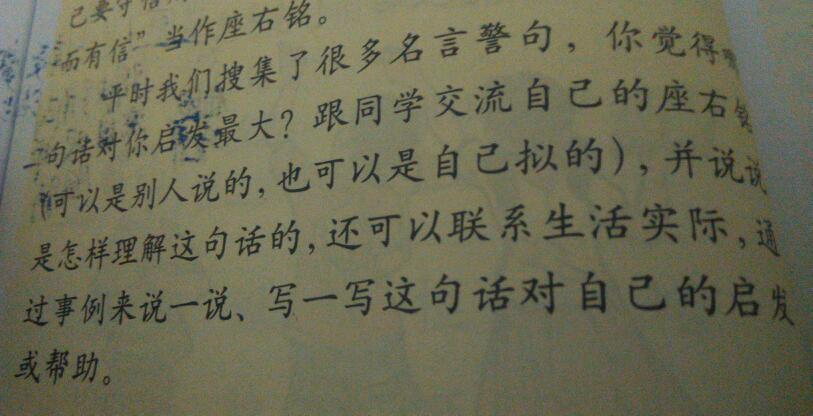 己要守信
而有信”当作座右铭。
平时我们搜集了很多名言警句，你觉得哪
一句话对你启发最大？跟同学交流自己的座右铭
（可以是别人说的，也可以是自己拟的），并说说
是怎样理解这句话的，还可以联系生活实际，通
过事例来说一说、写一写这句话对自己的启发
或帮助。